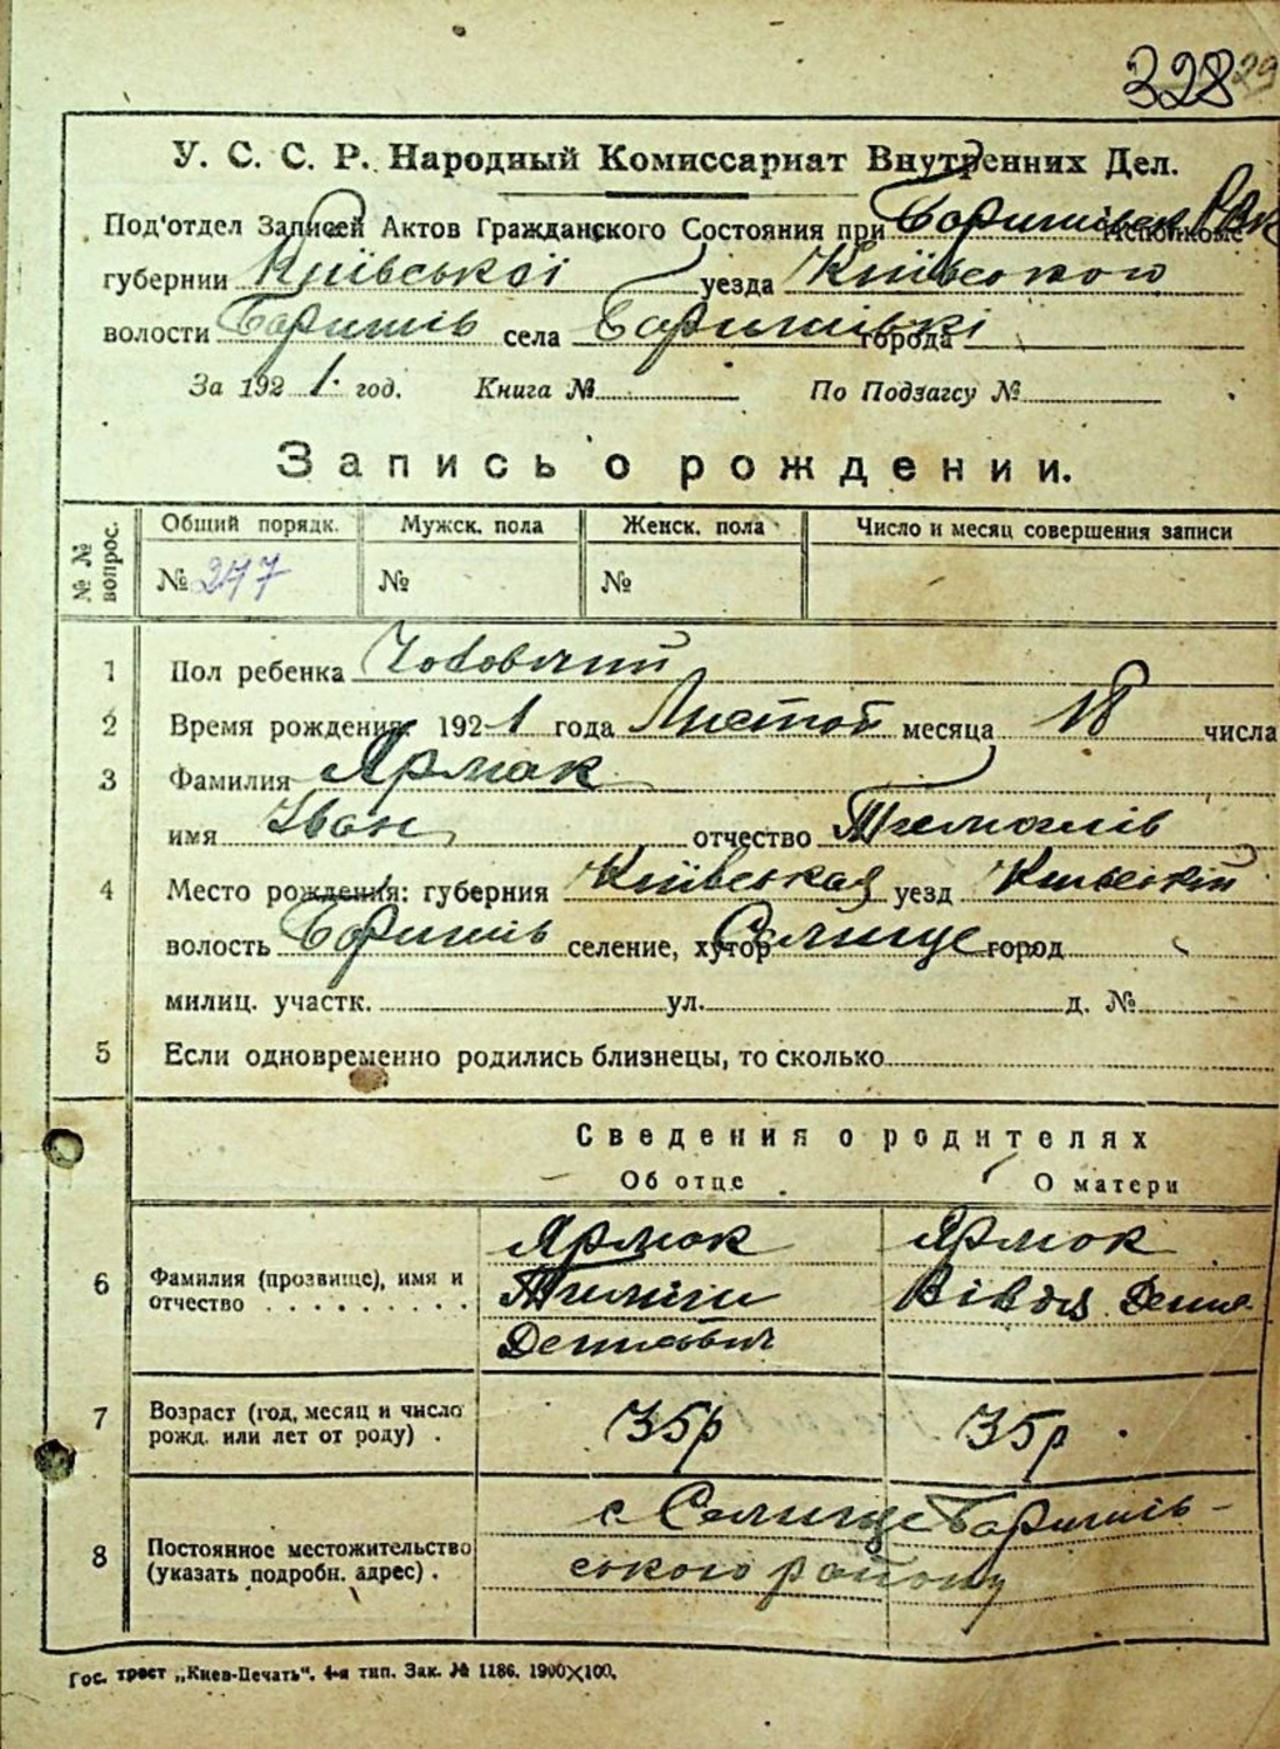 328 29
У. С. С. Р. Народный Комиссариат Внутренних Дел.
Под'отдел Записей Актов Гражданского Состояния при Баришівськ РВК Исполкоме
губернии Київської уезда Київського
волости Баришів села Баришівкі города
За 1921. год. Книга № По Подзагсу №
Запись о рождении.
№ № вопрос. Общий порядк. Мужск. пола Женск. пола Число и месяц совершения записи
№ 247 № №
1 Пол ребенка Чоловічий
2 Время рождения: 1921 года Листоп месяца 18 числа
3 Фамилия Ярмак
имя Іван отчество
4 Место рождения: губерния Київськая уезд Київський
волость Баришів селение, хутор Селище город
милиц. участк. ул. д. №
5 Если одновременно родились близнецы, то сколько
Сведения о родителях
Об отце О матери
6 Фамилия (прозвище), имя и отчество Ярмак Ярмак
Вівдя Дени
Денисович
7 Возраст (год, месяц и число рожд. или лет от роду) . 35р 35р
8 Постоянное местожительство (указать подробн. адрес) . с Селище Баришів-
ського району
Гос. трест „Киев-Печать“. 4-я тип. Зак. № 1186. 1900×100.